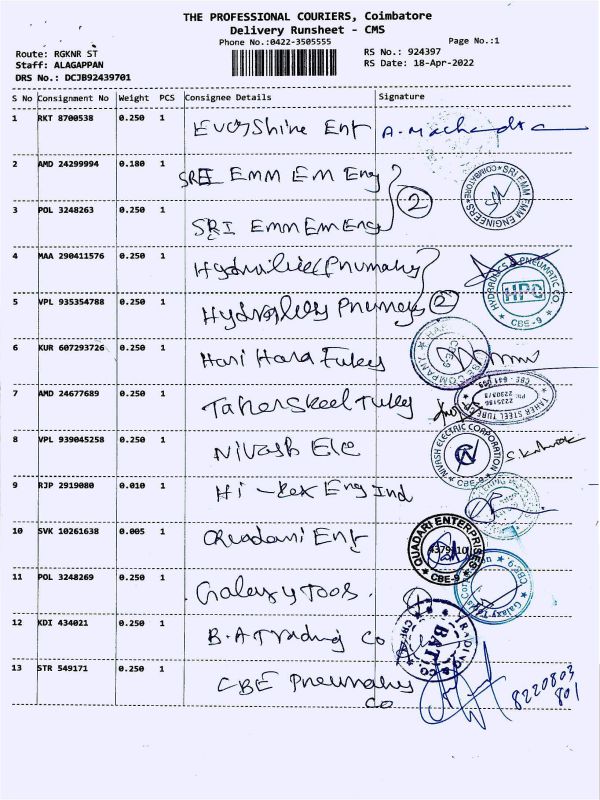 THE PROFESSIONAL COURIERS, Coimbatore
Delivery Runsheet - CMS
Phone No.:0422-3505555
Page No.:1
Route: RGKNR ST
RS No.: 924397
Staff: ALAGAPPAN
RS Date: 18-Apr-2022
DRS No.: DCJB92439701
S No Consignment No Weight PCS Consignee Details Signature
1 RKT 8700538 0.250 1 Evershine Ent
2 AMD 24299994 0.180 1 SRI Emm Em Eng
2
SRI EMM EMM ENGINEERS COIMBATORE
3 POL 3248263 0.250 1 SRI Emm Em Eng
4 MAA 290411576 0.250 1
HYDRAULICS & PNEUMATIC CO.
HPC
CBE-9
5 VPL 935354788 0.250 1
2
6 KUR 607293726 0.250 1 Hari Hara Tubes
7 AMD 24677689 0.250 1
TAHER STEEL TUBE
CBE - 641 009
8 VPL 939045258 0.250 1 Nivash Ele
NIVASH ELECTRIC CORPORATION
CBE-9
9 RJP 2919080 0.010 1 Eng Ind
10 SVK 10261638 0.005 1 Quadari Ent
QUADARI ENTERPRISES
CBE-9
11 POL 3248269 0.250 1 Galaxy Toos.
Galaxy
CBE-9
12 KDI 434021 0.250 1 B.A Trading Co
TRADING CO
BAT
13 STR 549171 0.250 1 CBE
Co
8220803
801